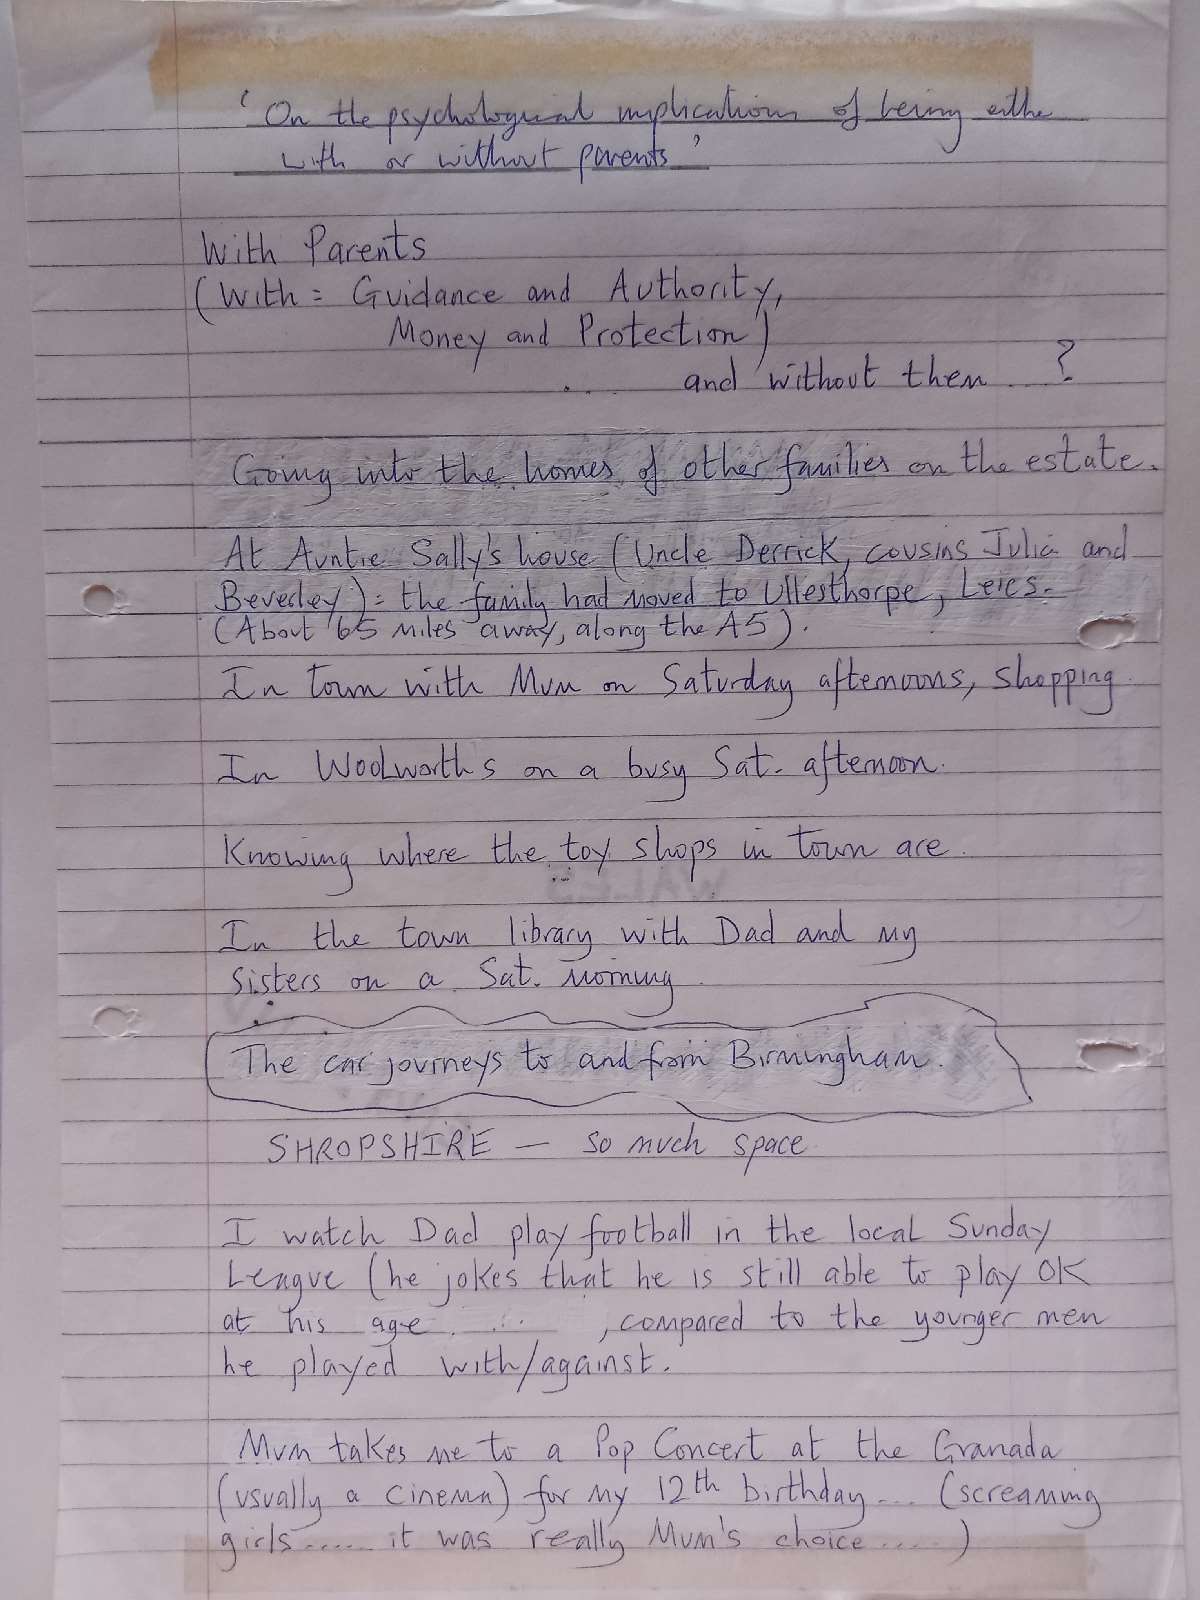 'On the psychological implications of being eithe
with or without parents'
With Parents
(With = Guidance and Authority,
Money and Protection)
.... and without them ... ?
Going into the homes of other families on the estate.
At Auntie Sally's house (Uncle Derrick, cousins Julia and
Beverley) = the family had moved to Ullesthorpe, Leics.
(About 65 miles away, along the A5).
In town with Mum on Saturday afternoons, shopping.
In Woolworths on a busy Sat. afternoon.
Knowing where the toy shops in town are.
In the town library with Dad and my
sisters on a Sat. morning.
The car journeys to and from Birmingham.
SHROPSHIRE — so much space.
I watch Dad play football in the local Sunday
League (he jokes that he is still able to play OK
at his age ...., compared to the younger men
he played with/against.
Mum takes me to a Pop Concert at the Granada
(usually a cinema) for my 12th birthday.... (screaming
girls..... it was really Mum's choice.....)